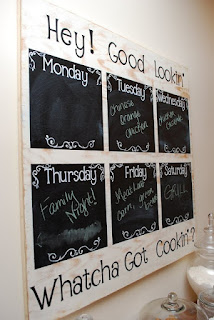 Hey! Good Lookin'
Monday
Tuesday
Chinese
Orange
Chicken
Wednesday
Chicken
Thursday
Family
Night!
Friday
Meatloaf
Corn, green
Saturday
GRILL
Whatcha Got Cookin'?